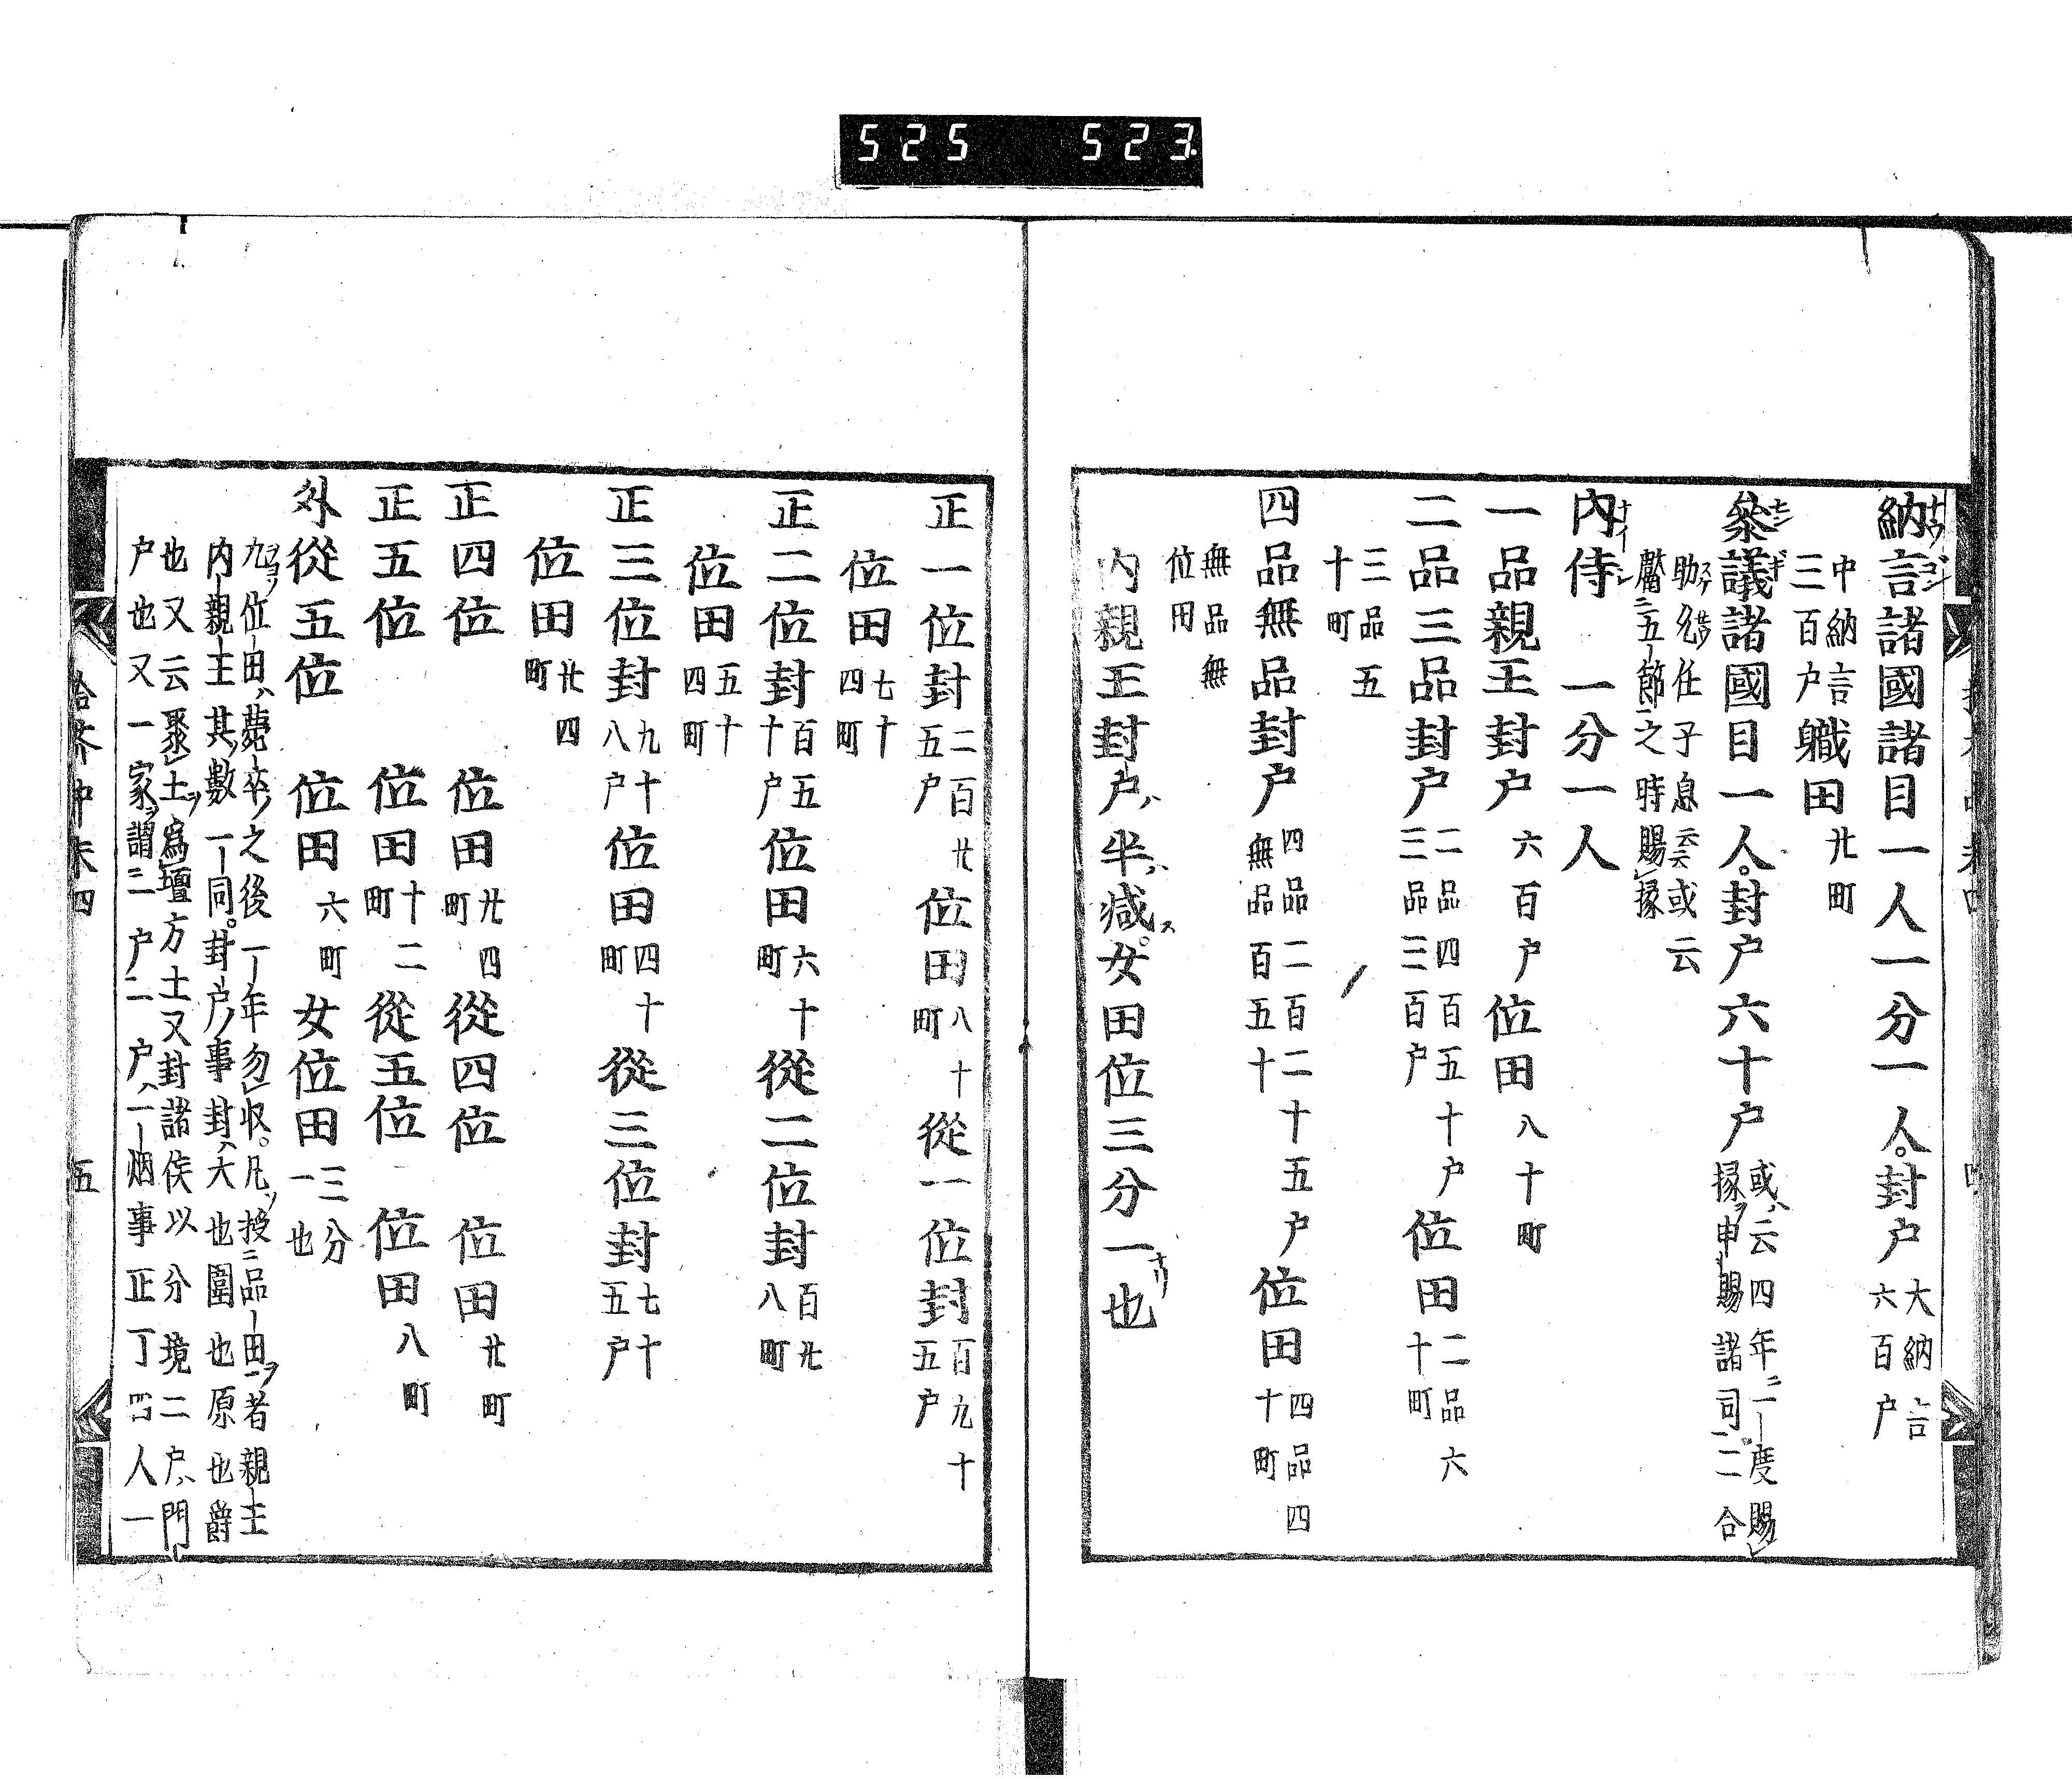 525 523
納言諸國諸目一人一分一人。封户大納言六百户
中納言三百户職田廿町
叅議諸國目一人。封户六十户或云四年二一度賜掾申賜諸司二合
助允任子息云云或云
五節之時賜掾
内侍 一分一人
一品親王封户六百户位田八十町
二品三品封户二品四百五十户三品三百户位田二品六十町
三品五十町
四品無品封户四品二百二十五户無品百五十位田四品四十町
無品無位田
内親王封户半减。女田位三分一也
正一位封二百廿五户位田八十町從一位封百九十五户
位田七十四町
正二位封百五十户位田六十町從二位封百廿八町
位田五十四町
正三位封九十八户位田四十町從三位封七十五户
位田廿四町
正四位 位田廿四町從四位 位田廿町
正五位 位田十二町從五位 位田八町
外從五位 位田六町女位田三分一也
九位田薨卒之後一年勿収。凡授品田者親王
内親王其數一同。封户事封大也圍也原也爵
也又云聚土爲壇方土又封諸侯以分境二户門
户也又一家謂二户二户一烟事正丁四人一
五